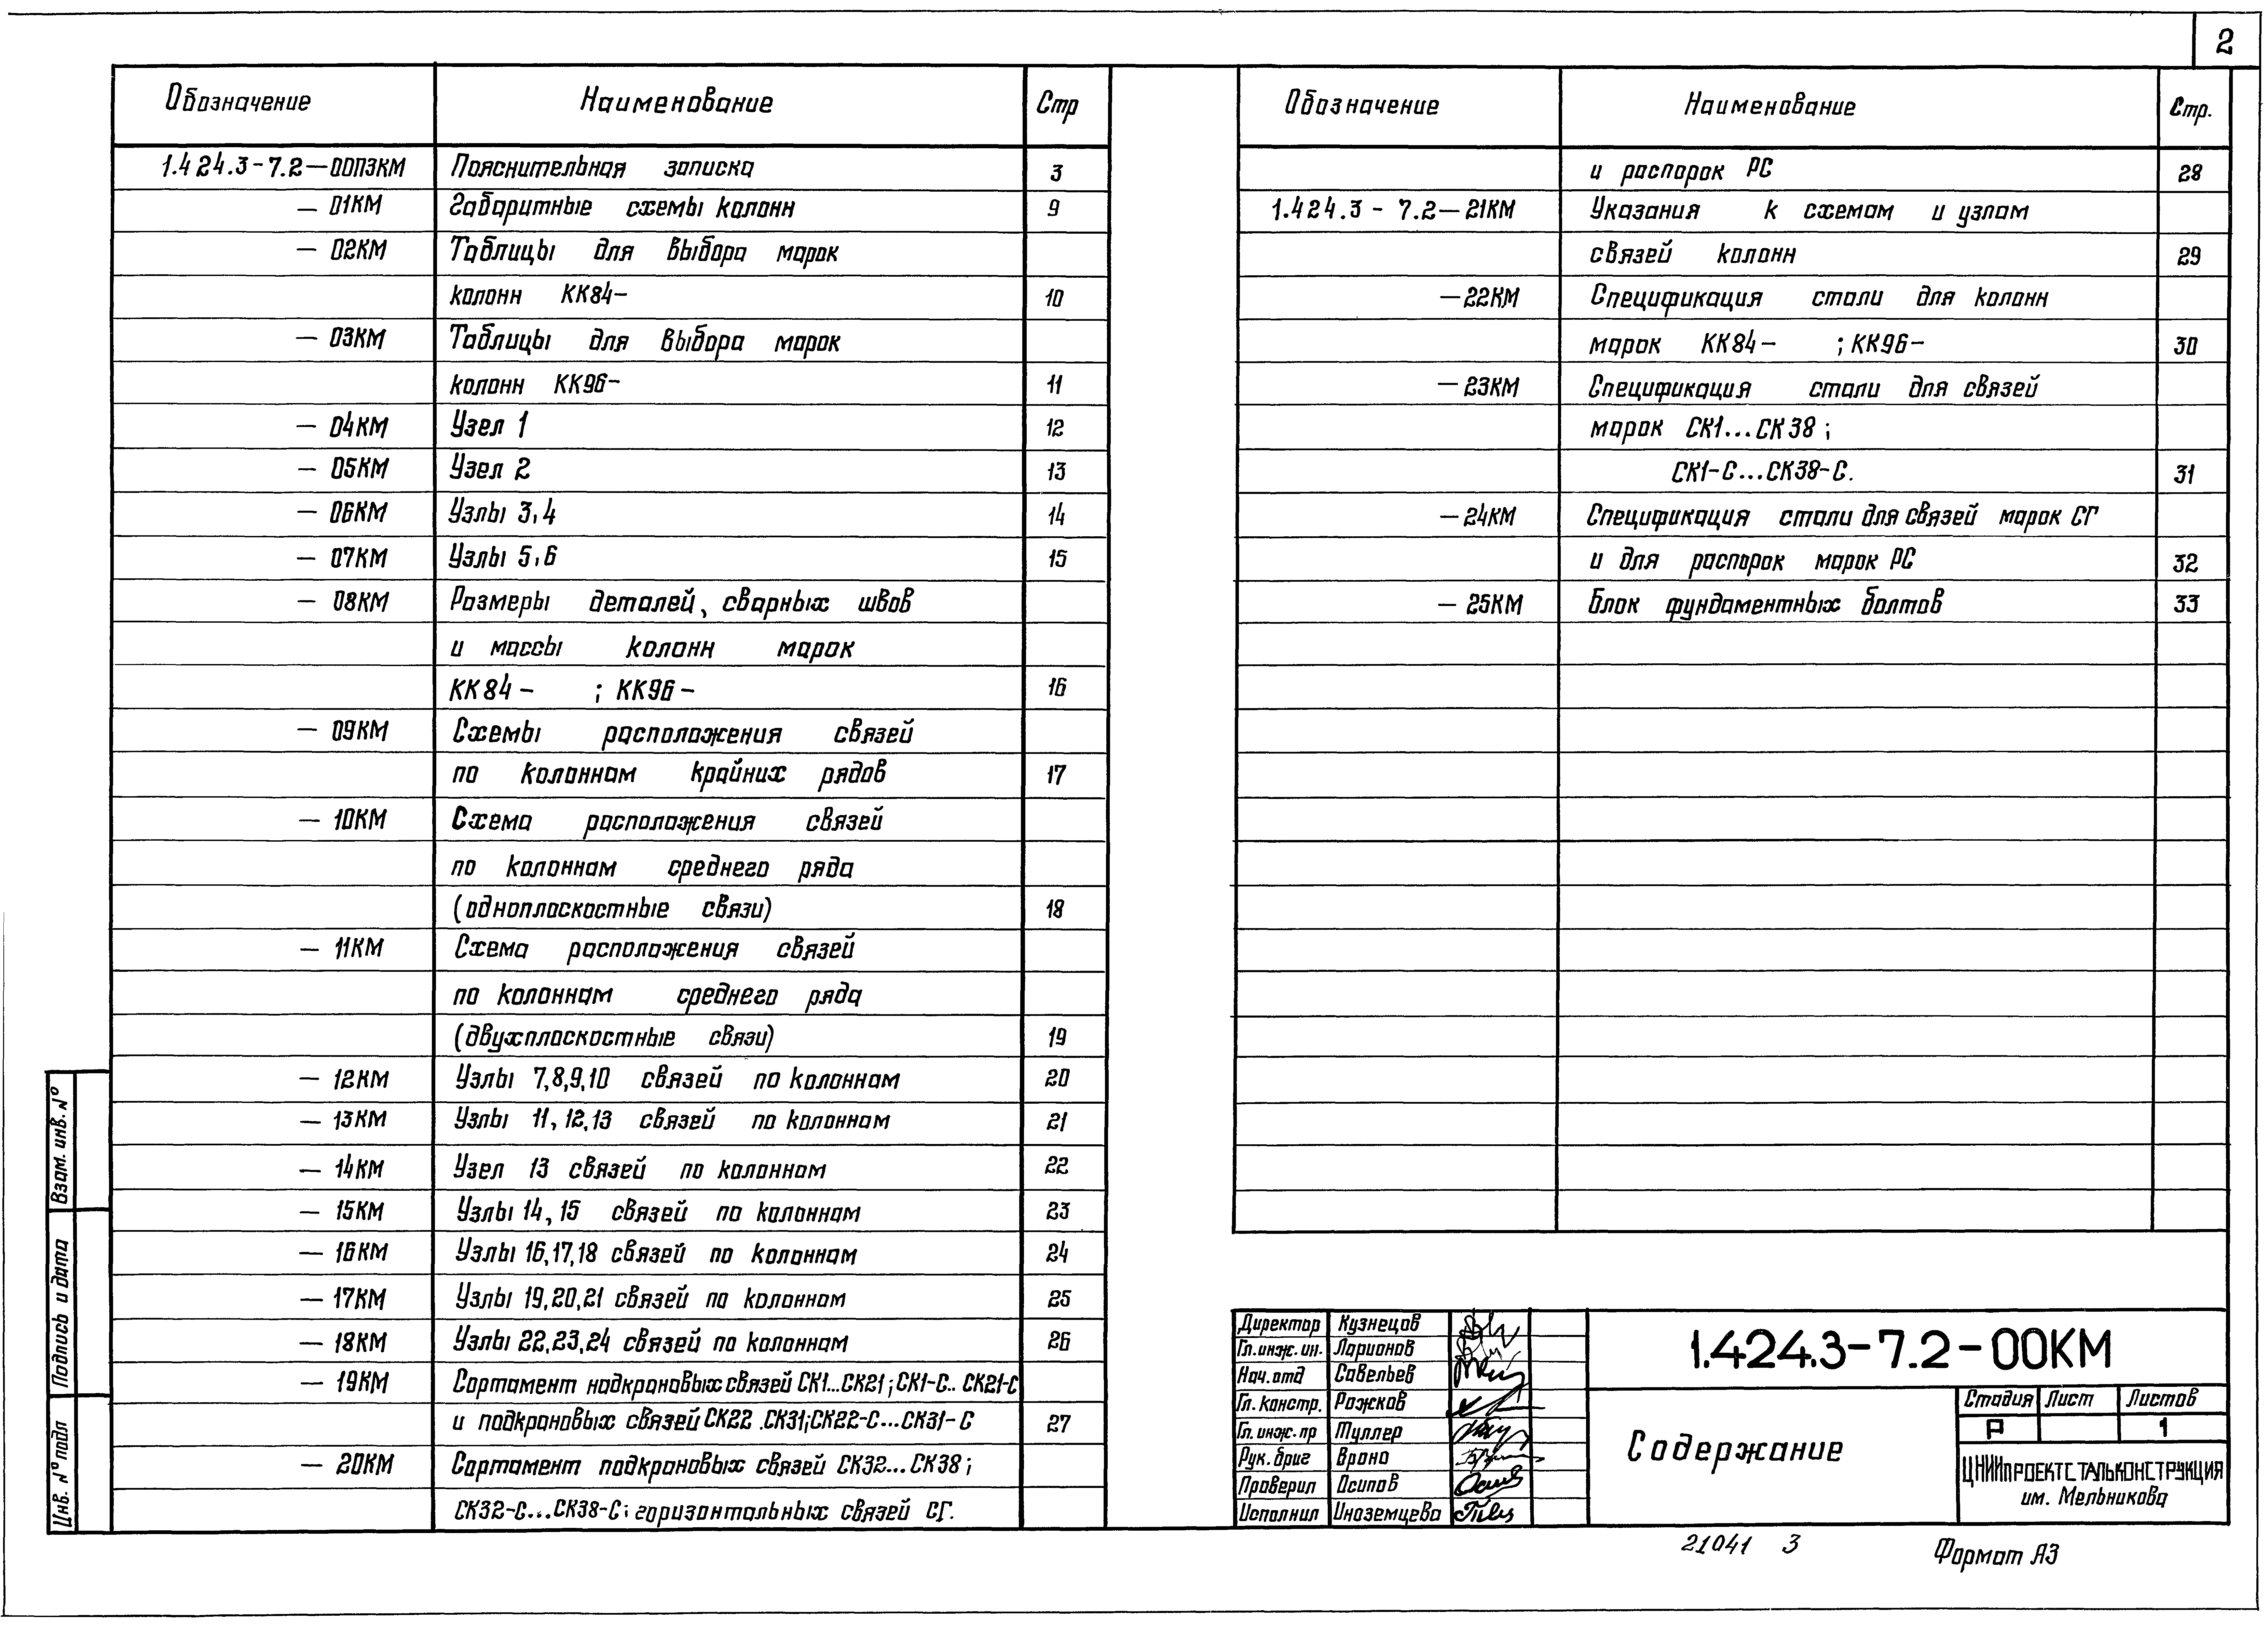 2
Обозначение Наименование Стр
1.424.3-7.2-00ПЗКМ Пояснительная записка 3
- 01КМ Габаритные схемы колонн 9
- 02КМ Таблицы для выбора марок
колонн КК84- 10
- 03КМ Таблицы для выбора марок
колонн КК96- 11
- 04КМ Узел 1 12
- 05КМ Узел 2 13
- 06КМ Узлы 3,4 14
- 07КМ Узлы 5,6 15
- 08КМ Размеры деталей, сварных швов
и массы колонн марок
КК84- ; КК96- 16
- 09КМ Схемы расположения связей
по колоннам крайних рядов 17
- 10КМ Схема расположения связей
по колоннам среднего ряда
(одноплоскостные связи) 18
- 11КМ Схема расположения связей
по колоннам среднего ряда
(двухплоскостные связи) 19
- 12КМ Узлы 7,8,9,10 связей по колоннам 20
- 13КМ Узлы 11,12,13 связей по колоннам 21
- 14КМ Узел 13 связей по колоннам 22
- 15КМ Узлы 14,15 связей по колоннам 23
- 16КМ Узлы 16,17,18 связей по колоннам 24
- 17КМ Узлы 19,20,21 связей по колоннам 25
- 18КМ Узлы 22,23,24 связей по колоннам 26
- 19КМ Сортамент надкрановых связей СК1...СК21; СК1-С.. СК21-С
и подкрановых связей СК22 .СК31; СК22-С...СК31-С 27
- 20КМ Сортамент подкрановых связей СК32...СК38;
СК32-С...СК38-С; горизонтальных связей СГ.
Обозначение Наименование Стр.
и распорок РС 28
1.424.3-7.2-21КМ Указания к схемам и узлам
связей колонн 29
-22КМ Спецификация стали для колонн
марок КК84- ; КК96- 30
-23КМ Спецификация стали для связей
марок СК1...СК38;
СК1-С...СК38-С. 31
-24КМ Спецификация стали для связей марок СГ
и для распорок марок РС 32
-25КМ Блок фундаментных болтов 33
Взам. инв. №
Подпись и дата
Инв. № подл
Директор Кузнецов
Гл. инж. ин. Ларионов
Нач. отд Савельев
Гл. констр. Рожков
Гл. инж. пр Туллер
Рук. бриг Врона
Проверил Осипов
Исполнил Иноземцева
1.424.3-7.2-00КМ
Содержание
Стадия Лист Листов
Р 1
ЦНИИПРОЕКТСТАЛЬКОНСТРУКЦИЯ
им. Мельникова
21041 3
Формат А3